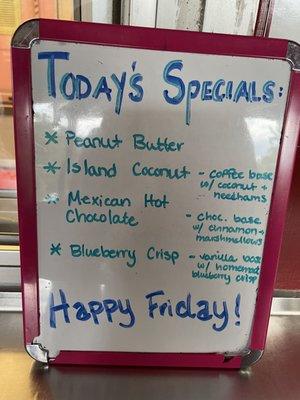 Today's Specials:
* Peanut Butter
* Island Coconut - coffee base
w/ coconut +
needhams
* Mexican Hot
Chocolate - choc. base
w/ cinnamon +
marshmellows
* Blueberry Crisp - vanilla base
w/ homemade
blueberry crisp
Happy Friday!